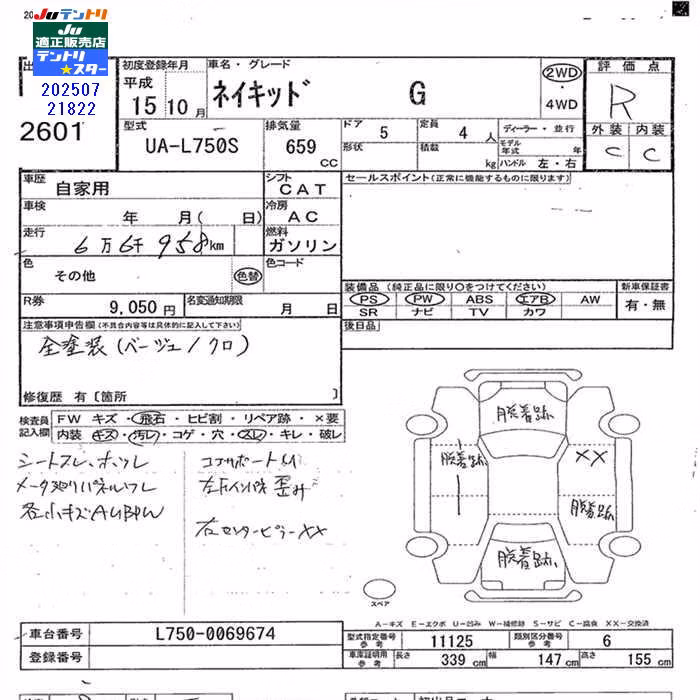 20
JUテントリ
JU
適正販売店
テントリ
★スター
202507
21822
出
2601
初度登録年月
平成
15 10 月
車名・グレード
ネイキッド G
2WD
・
4WD
評価点
R
外装 内装
C C
型式
UA-L750S
排気量
659
CC
ドア 5
定員 4 人
形状
積載 kg
ディーラー・並行
モデル年式 年
ハンドル 左・右
車歴
自家用
シフト
CAT
セールスポイント(正常に機能するものに限ります)
車検
年 月( 日)
冷房
AC
走行
6万6千958km
燃料
ガソリン
色
その他
色替
色コード
R券
9,050 円
名変通知期限
月 日
装備品(純正品に限り○をつけてください)
PS PW ABS エアB AW
SR ナビ TV カワ
新車保証書
有・無
後日品
注意事項申告欄(不具合内容等は具体的に記入して下さい)
全塗装(ベージュ/クロ)
修復歴 有〔箇所 〕
検査員
記入欄
FW キズ・飛石・ヒビ割・リペア跡・×要
内装 キズ・汚レ・コゲ・穴・スレ・キレ・破レ
シートスレ、ホツレ
メータ廻りパネルワレ
各小キズAUBPW
コアサポート
歪み
右センターピラーXX
脱着跡
脱着跡
XX
脱着跡
脱着跡
スペア
A－キズ E－エクボ U－凹み W－補修跡 S－サビ C－腐食 XX－交換済
車台番号
L750-0069674
登録番号
型式指定番号
参考
11125
類別区分番号
参考
6
車庫証明用
参考
長さ
339 cm
幅
147 cm
高さ
155 cm